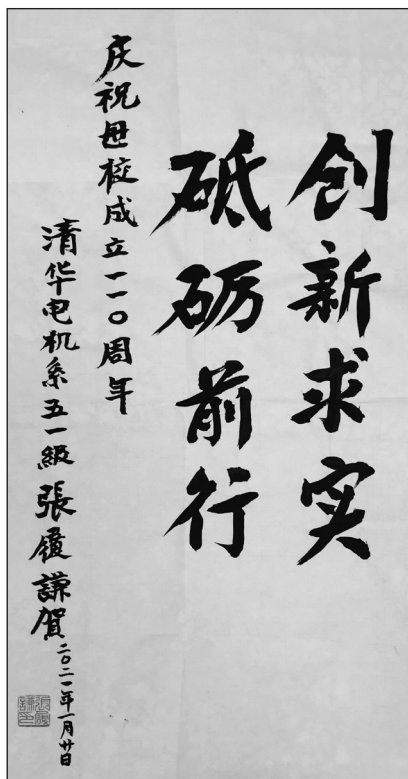 创新求实
砥砺前行
庆祝母校成立一一〇周年
清华电机系五一级 張履謙賀
二〇二一年一月廿日